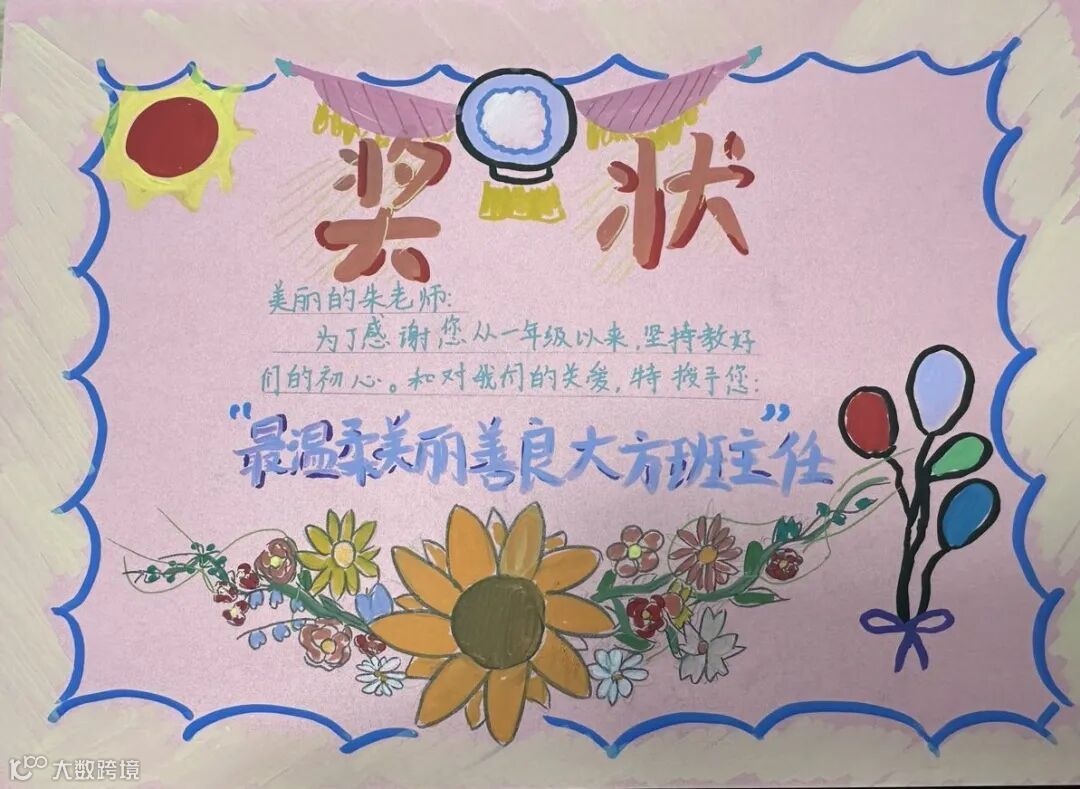 奖状
美丽的朱老师:
为了感谢您从一年级以来,坚持教好
们的初心。和对我们的关爱,特授予您:
“最温柔美丽善良大方班主”任
大数跨境